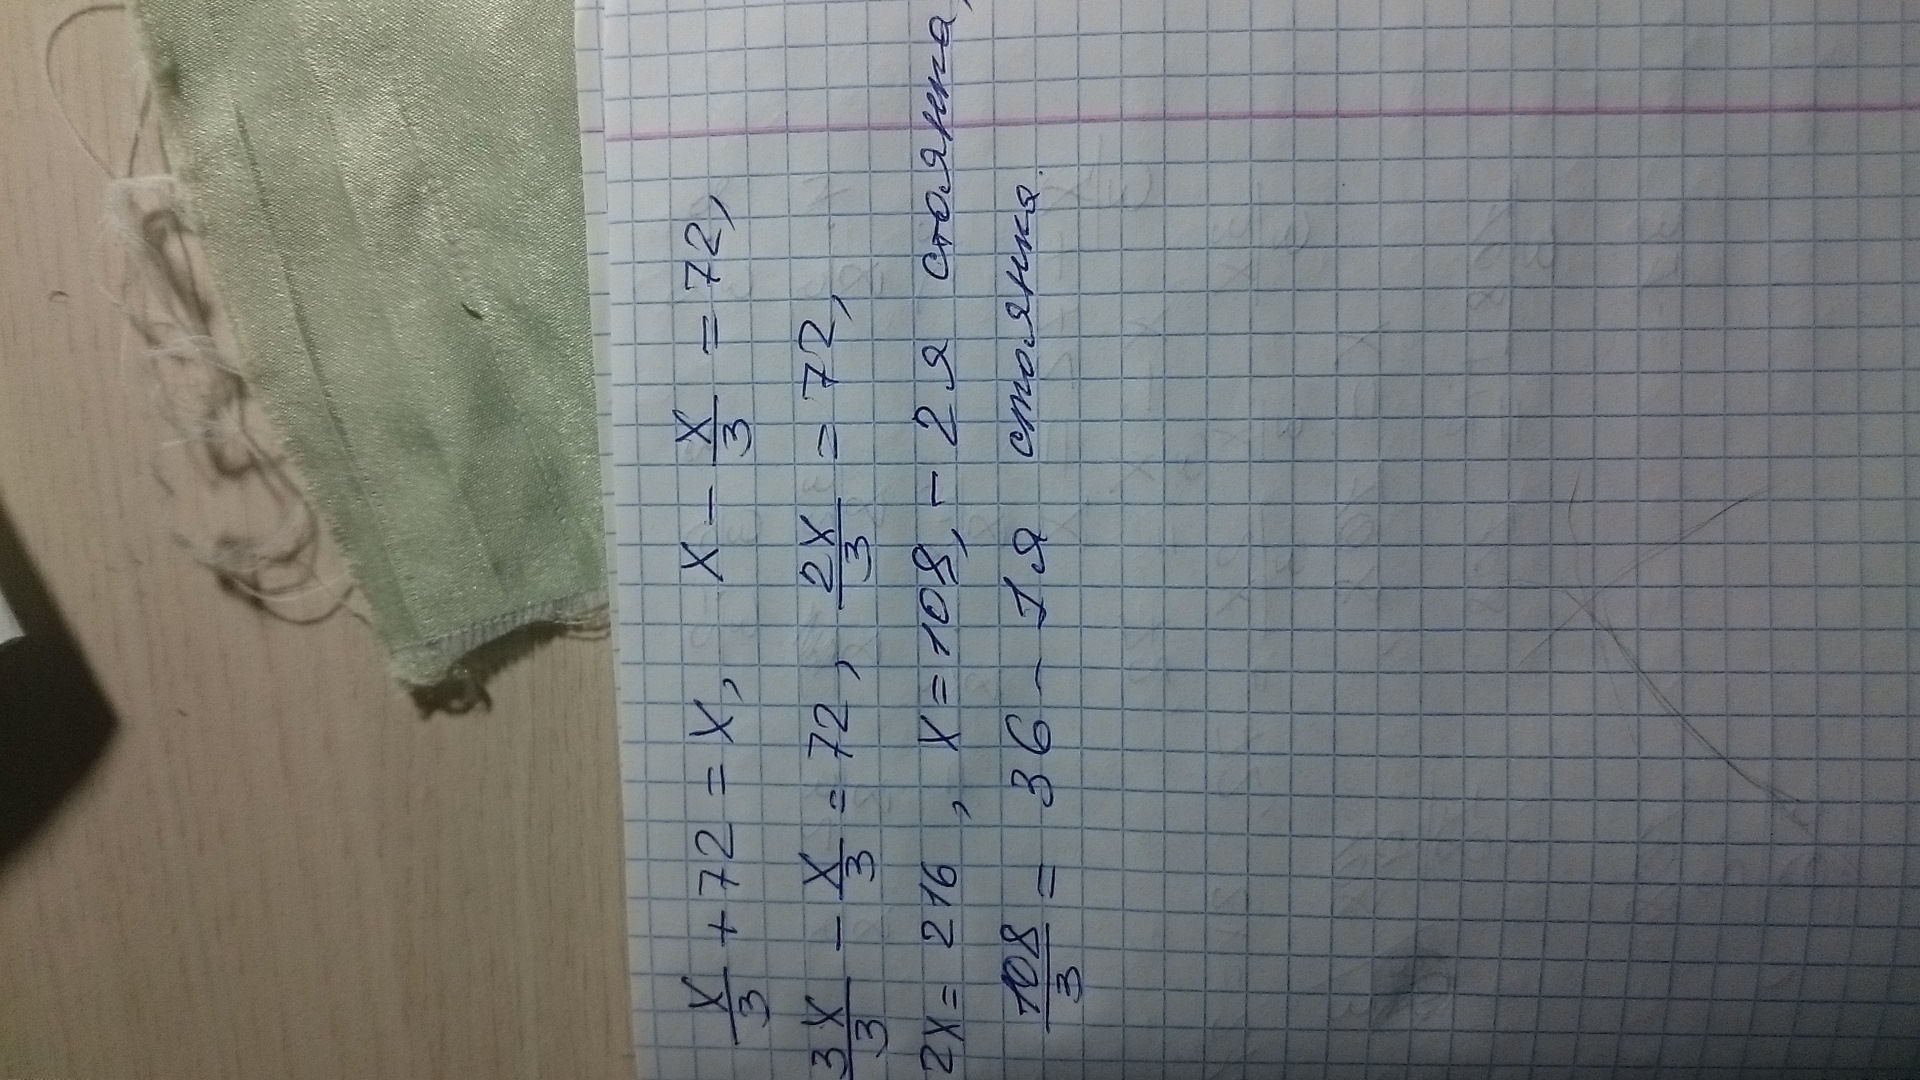 x/3 + 72 = x, x - x/3 = 72,
3x/3 - x/3 = 72, 2x/3 = 72,
2x = 216, x = 108, - 2я стоянка,
108/3 = 36 - 1я стоянка.